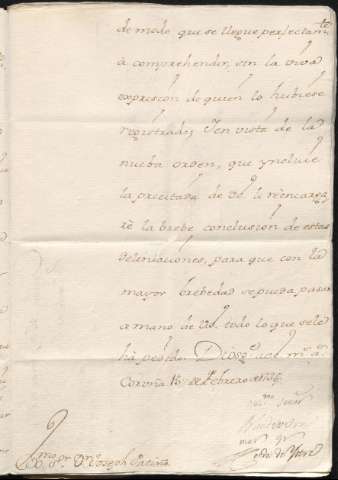 de modo que se llegue perfectam.te
a comprehender, sin la viva
expresion de quien lo hubiese
registrado; Y en vista de la
nueba orden, que yncluie
la precitada de VS. le reencarga
rè la brebe conclusion de estas
deleniaciones, para que con la
mayor brebedad se pueda pasar
a mano de VS. todo lo que se le
ha pedido. Dios g.e a m.s a.s
Coruña 15 de Febrero
Ill.mo S.r D.n Joseph Patiño